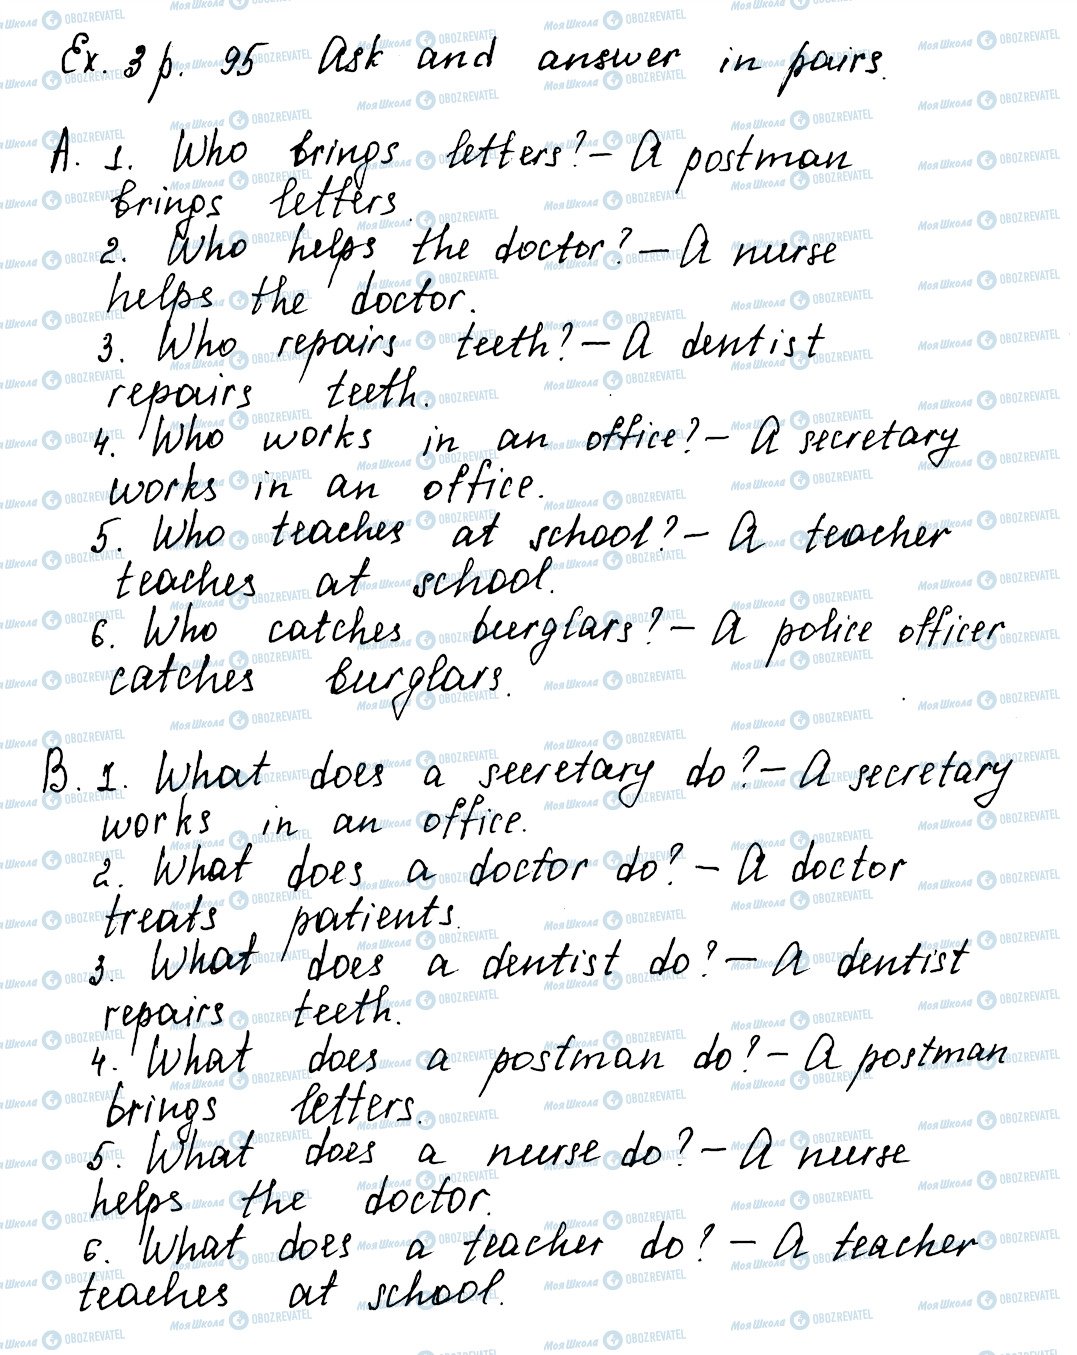 Ex. 3 p. 95 Ask and answer in pairs.
A. 1. Who brings letters? – A postman
brings letters.
2. Who helps the doctor? – A nurse
helps the doctor.
3. Who repairs teeth? – A dentist
repairs teeth.
4. Who works in an office? – A secretary
works in an office.
5. Who teaches at school? – A teacher
teaches at school.
6. Who catches burglars? – A police officer
catches burglars.
B. 1. What does a secretary do? – A secretary
works in an office.
2. What does a doctor do? – A doctor
treats patients.
3. What does a dentist do? – A dentist
repairs teeth.
4. What does a postman do? – A postman
brings letters.
5. What does a nurse do? – A nurse
helps the doctor.
6. What does a teacher do? – A teacher
teaches at school.
МояШкола OBOZREVATEL